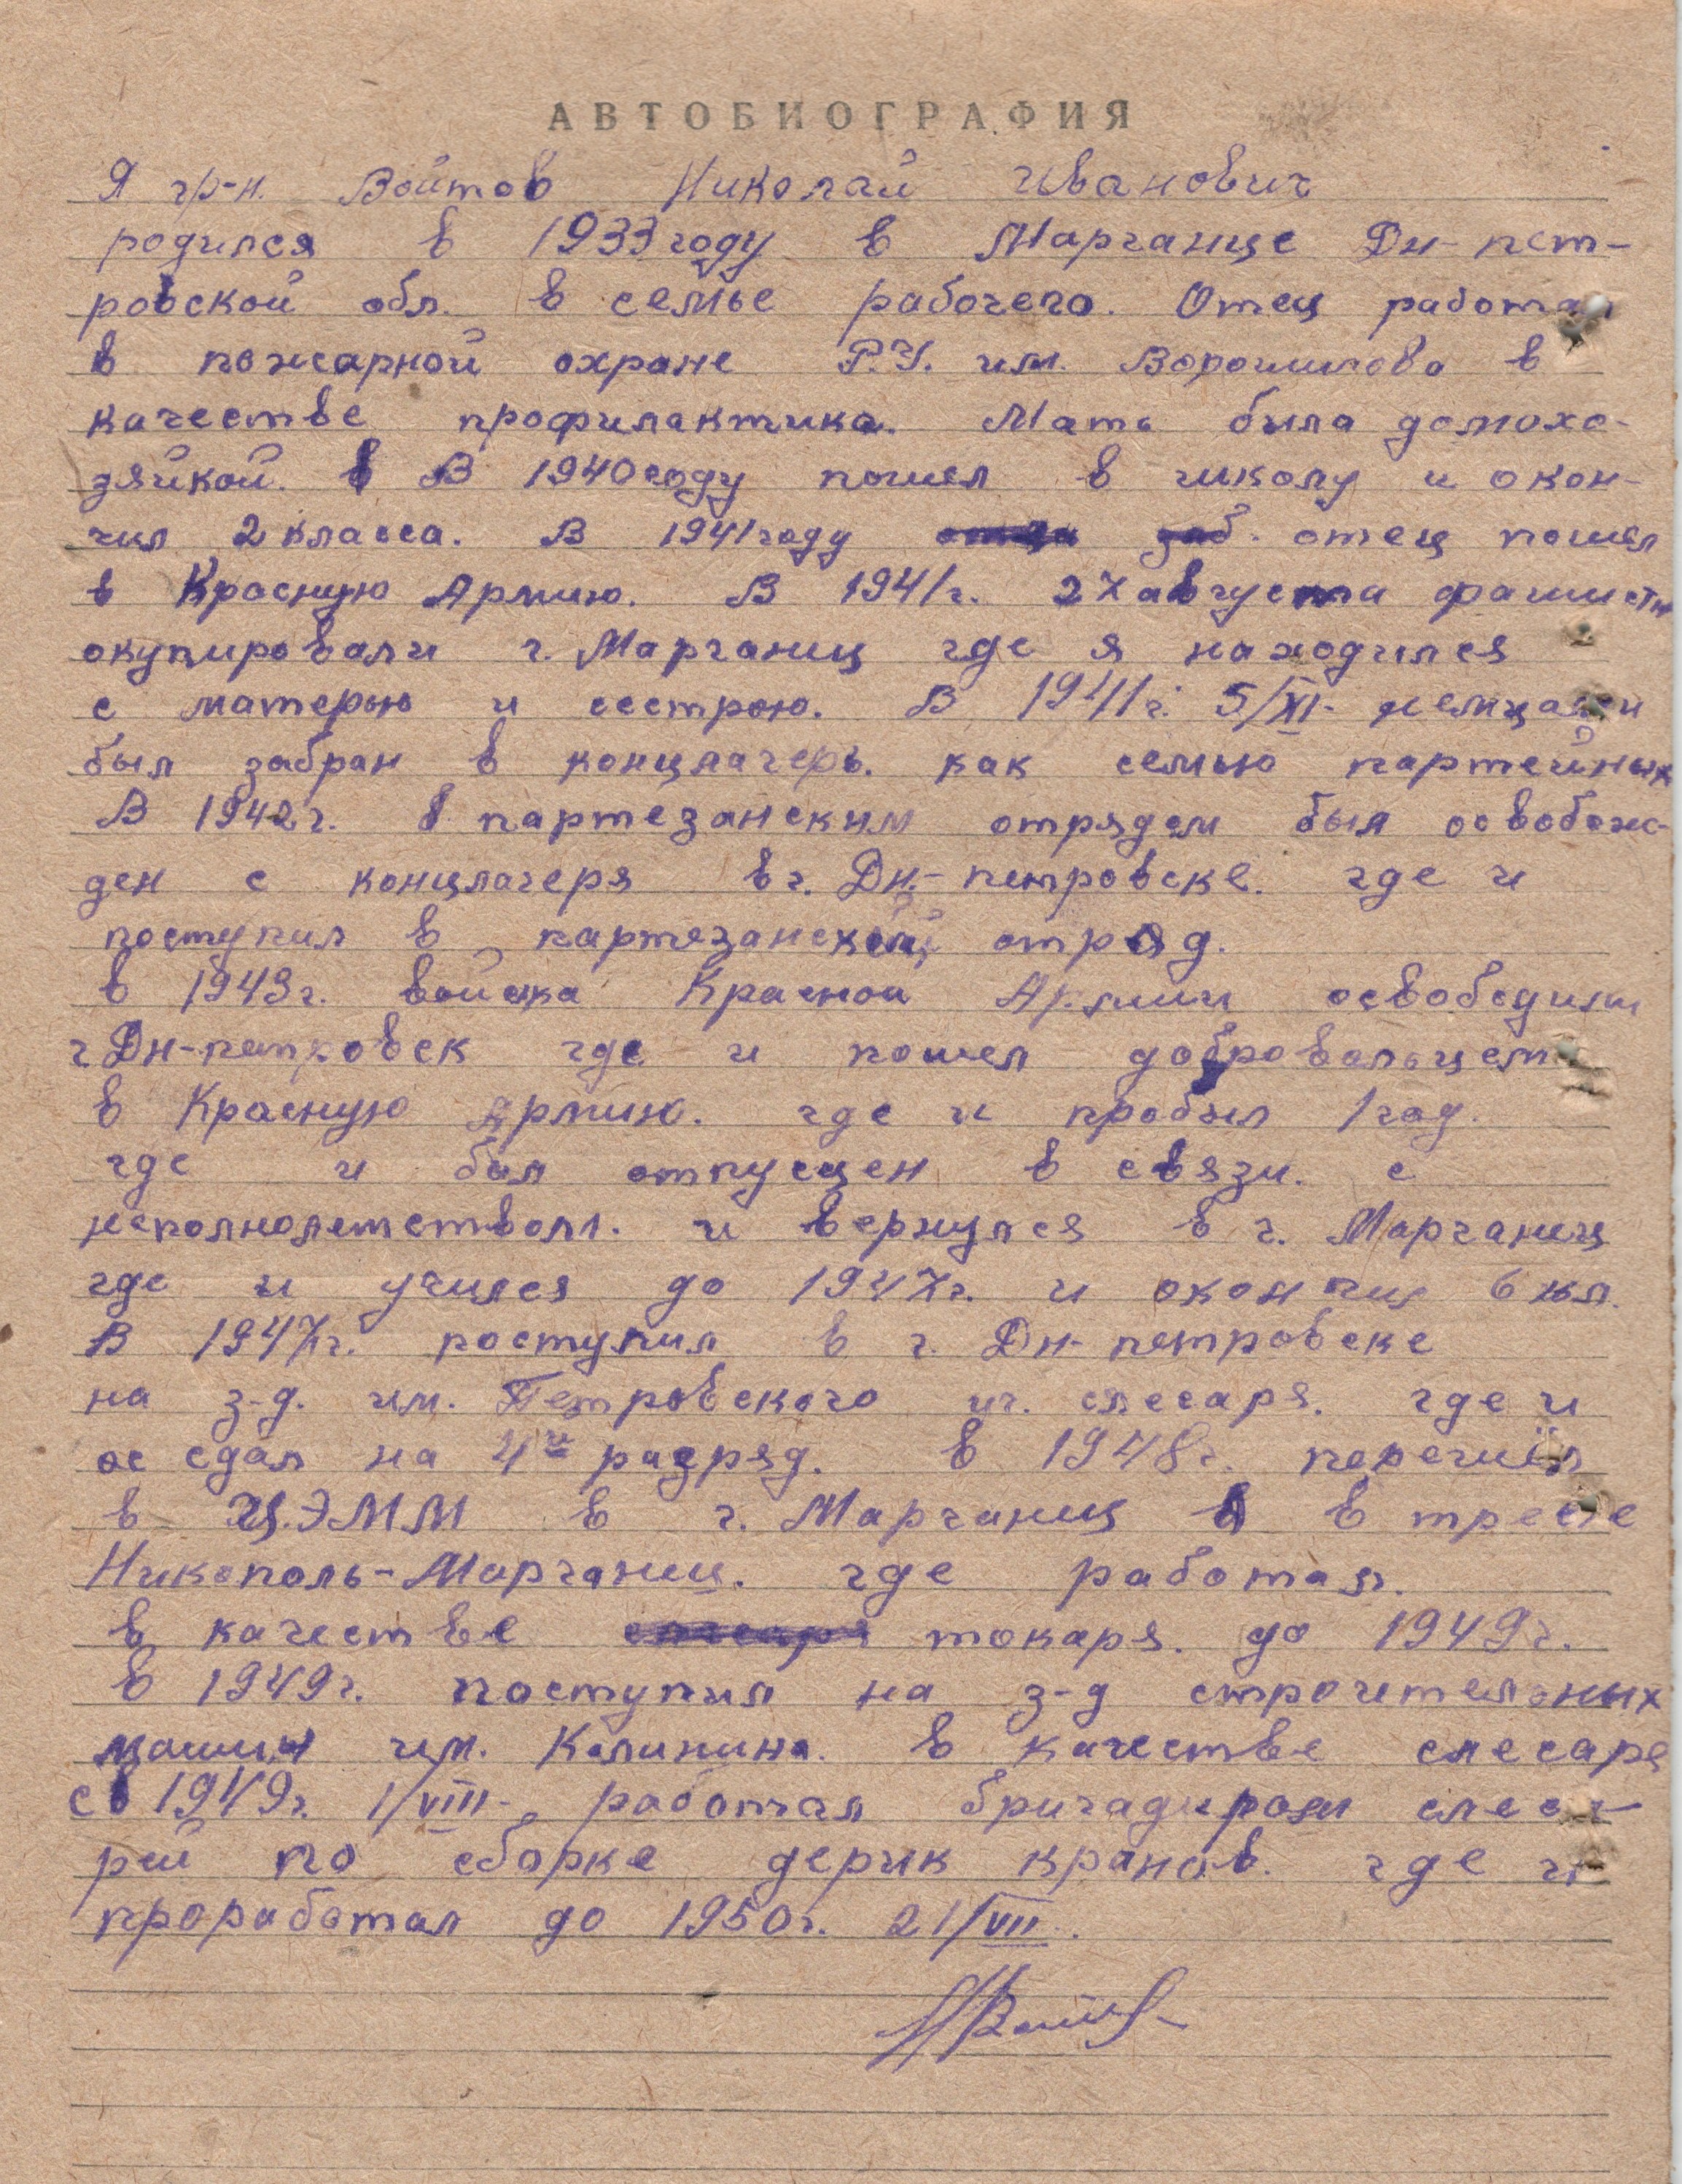 АВТОБИОГРАФИЯ
Я гр-н. Войтов Николай Иванович
родился в 1933 году в Марганце Дн-пет-
ровской обл. в семье рабочего. Отец работал
в пожарной охране Р.У. им. Ворошилова в
качестве профилактика. Мать была домохо-
зяйкой. В 1940 году пошел в школу и окон-
чил 2 класса. В 1941 году отец пошел
в Красную Армию. В 1941 г. 27 августа фашисты
окупировали г. Марганиц где я находился
с матерью и сестрою. В 1941 г. 5/XI- немцами
был забран в концлагерь. как семью партейных
В 1942 г. партезанским отрядом был освобож-
ден с концлагеря в г. Дн.-петровске. где и
поступил в партезанский отряд.
в 1943 г. войска Красной Армии освободили
г Дн-петровск где и пошел добровольцем
в Красную Армию. где и пробыл 1 год.
где и был отпущен в связи. с
неполнолетством. и вернулся в г. Марганиц
где и учился до 1947 г. и окончил 6 кл.
В 1947 г. поступил в г. Дн-петровске
на з-д. им. Петровского уч. слесаря. где и
сдал на 4й разряд. в 1948 г. перешёл
в Ц.ЭММ в г. Марганиц в тресте
Никополь-Марганиц. где работал.
в качестве слесаря токаря. до 1949 г.
в 1949 г. поступил на з-д строительных
машин им. Калинина. в качестве слесаря
с 1949 г. 1/VIII- работал бригадиром слеса-
рей по сборке дерик кранов. где и
проработал до 1950 г. 21/VII.